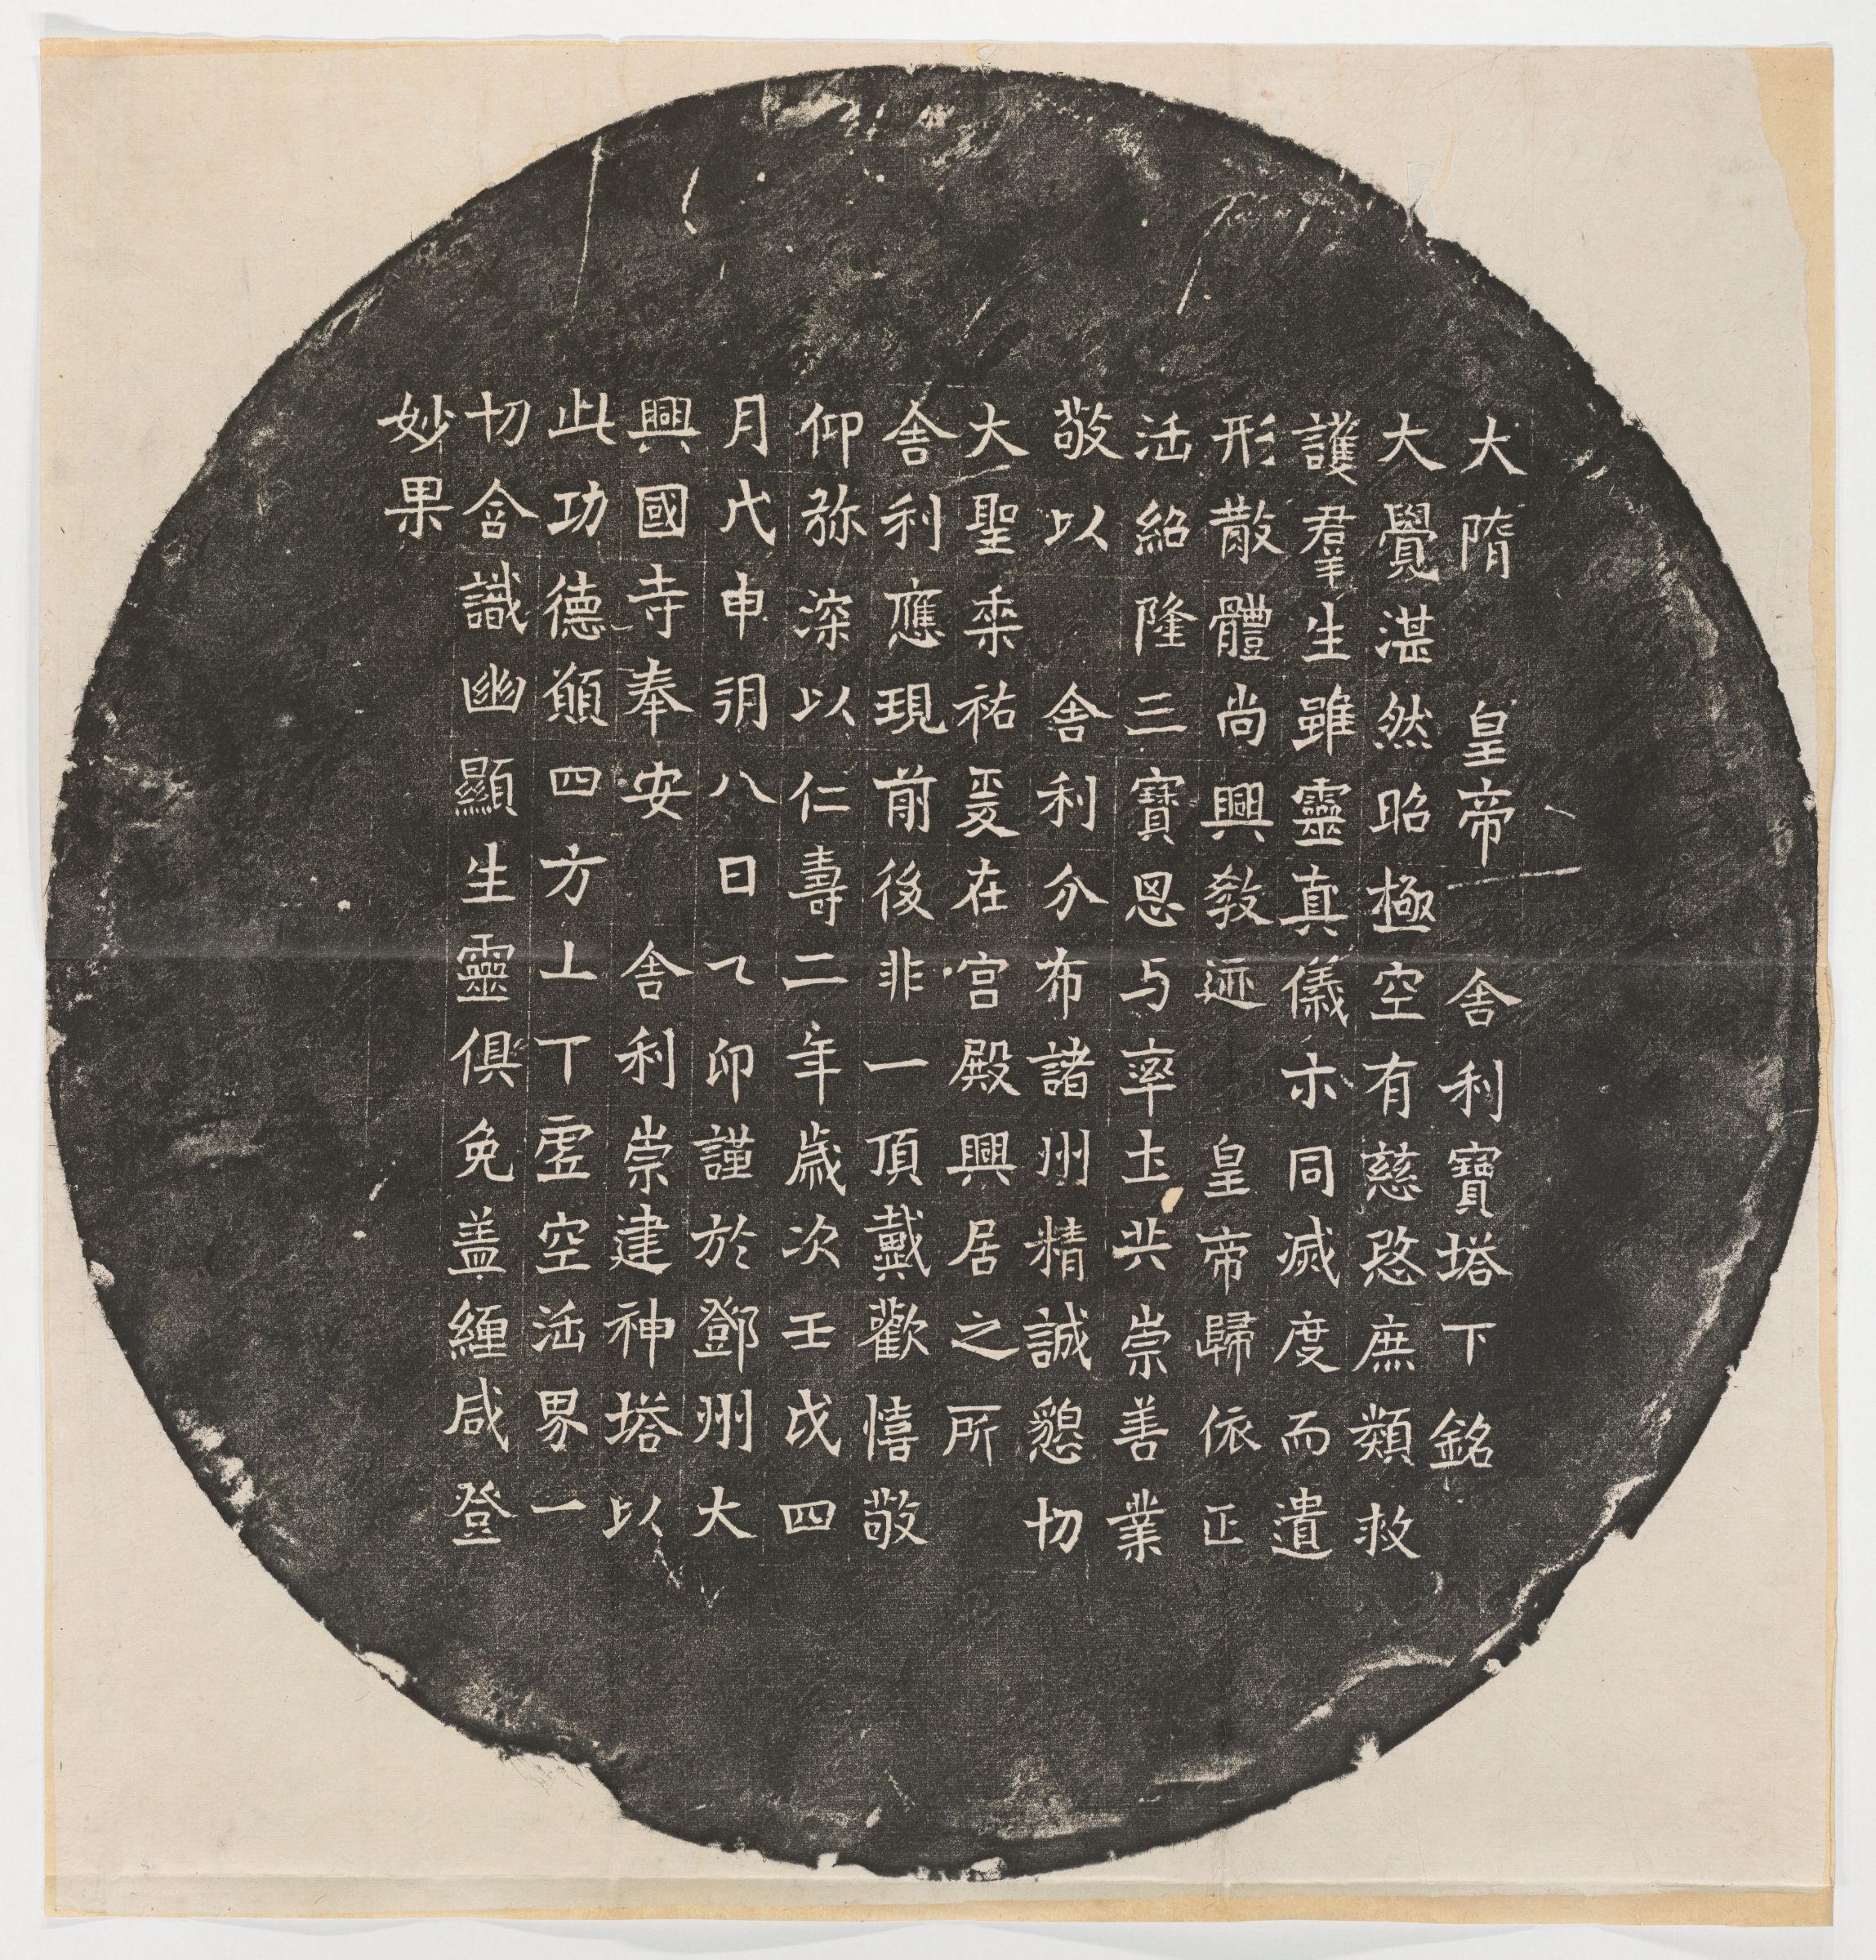 大隋皇帝舍利寶塔下銘
大覺湛然昭極空有慈愍庶類救
護羣生雖靈真儀示同滅度而遺
形散體尚興教迹皇帝歸依正
法紹隆三寶思与率土共崇善業
敬以舍利分布諸州精誠懇切
大聖垂祐爰在宮殿興居之所
舍利應現前後非一頂戴歡憘敬
仰弥深以仁壽二年歲次壬戌四
月戊申朔八日乙卯謹於鄧州大
興國寺奉安舍利崇建神塔以
此功德願四方上下虛空法界一
切含識幽顯生靈俱免蓋纏咸登
妙果